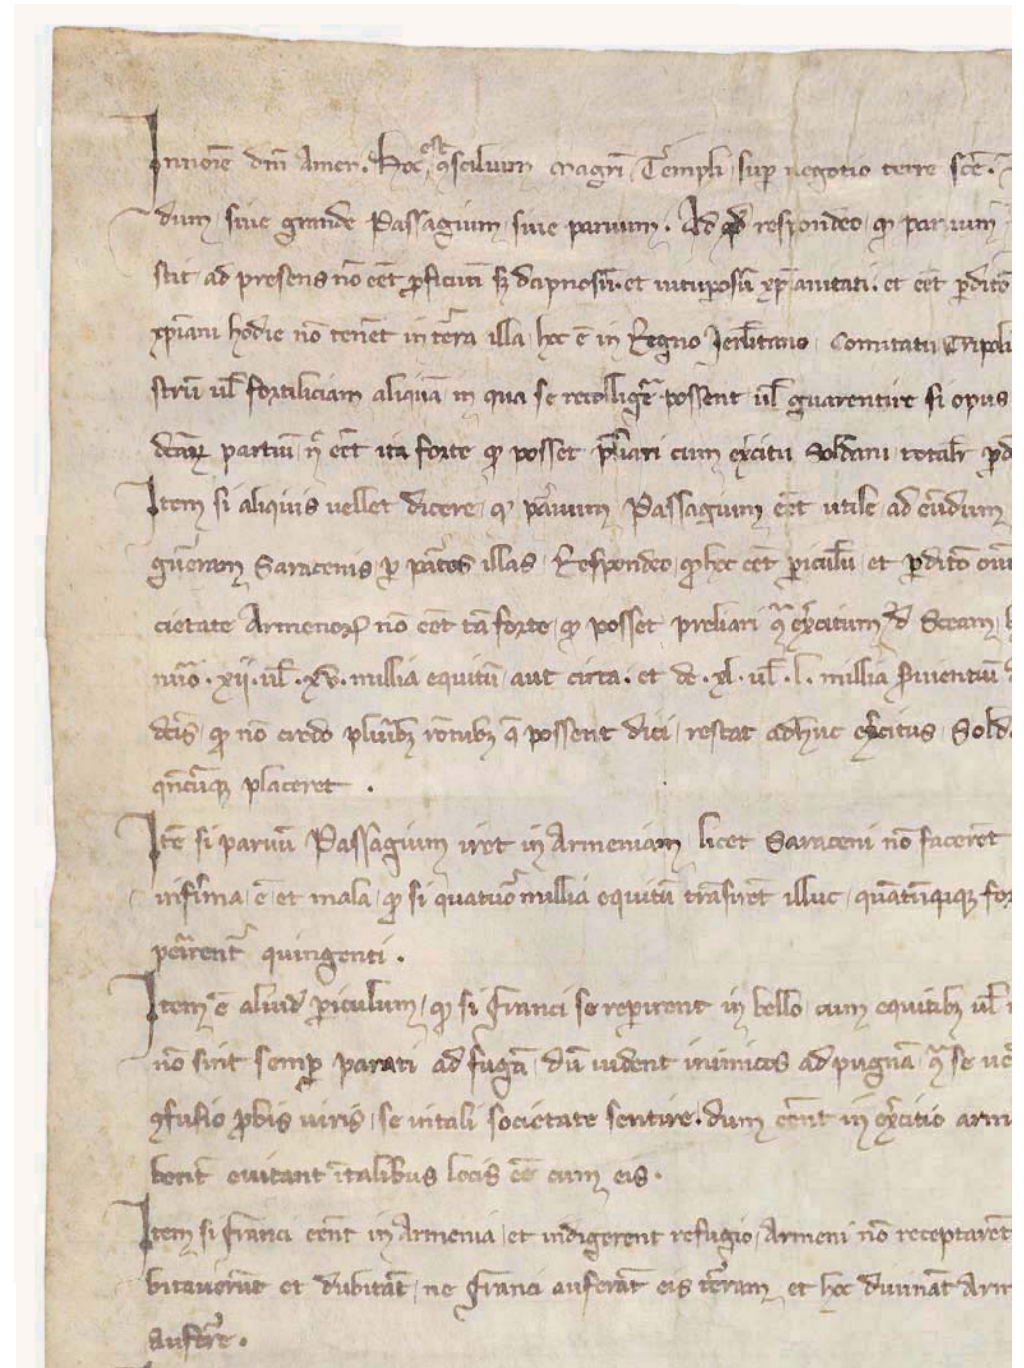 In noīe dnī Amen. Hoc est ꝯsilium Magrī Templi sup negotio terre scē.
dum siue grande Passagium siue paruum. Ad qd respondeo qꝫ paruum
stit ad presens nō eēt ꝓficuū sꝫ dāpnosū. et uituposū xp̄ianitati. et eēt ꝑditō
xp̄iani hodie nō tenēt in terra illa hoc ē in Regno Jerl̄itano Comitatu Tripoli
strū ul̄ fortiliciam aliquā in qua se recolligere possent ul̄ guarentire si opus
dc̄aꝝ partiū nō eēt ita forte qꝫ posset pliari cum exercitu Soldani
Item si aliquis uellet dicere qꝫ paruum Passagium eēt utile ad eūdum
guerram Saracenis ꝑ partes illas Respondeo qꝫ hoc eēt ꝑiculū et ꝑditō
cietate Armenoꝝ nō eēt tā forte qꝫ posset preliari exercitum de
nūo .xij. ul̄ .xv. millia equitū aut circa. et de .xl. ul̄ .l. millia
dc̄is qꝫ nō credo pluribꝫ rōnibꝫ q̄ possent dici restat adhuc exercitus
placeret .
Itē si paruū Passagium iret in Armeniam licet Saraceni nō facerēt
infirma ē et mala qꝫ si quatuor millia equitū trāsirēt illuc
quingenti .
Item ē aliud ꝑiculum qꝫ si franci se reperirent in bello cum equitibꝫ ul̄
nō sint semꝑ parati ad fugā dū uident inimicos ad pugnā se
ꝯfusio ꝓbis uiris se in tali societate sentire. dum eēnt in exercitio
euitant ī talibus locis eē cum eis.
Item si franci eēnt in Armenia et indigerent refugio Armeni nō receptarēt
bitauerūt et dubitāt ne franci auferāt eis terram et hoc diuināt
auferre .